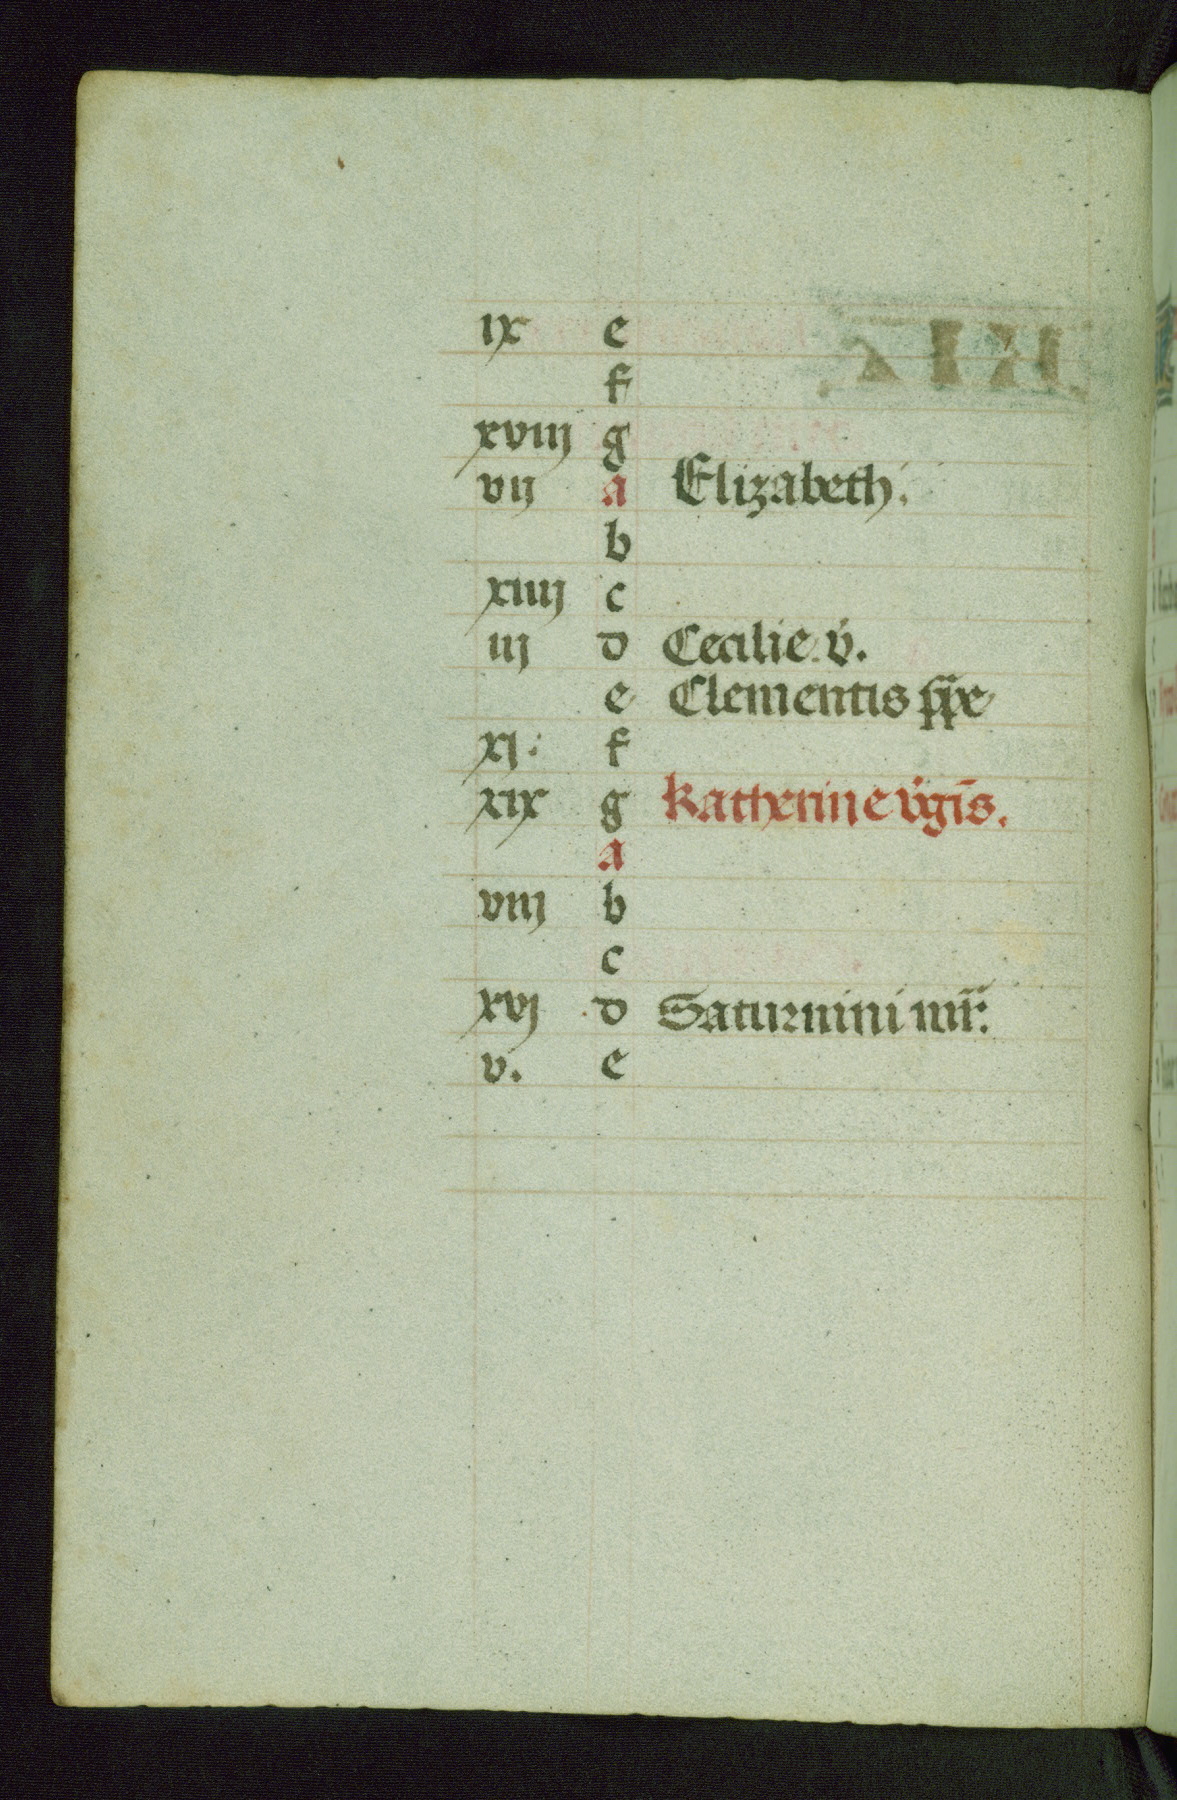 ix e
f
xviij g
vij a Elizabeth.
b
xiiij c
iij d Cecilie v̓.
e Clementis pp̄e
xj. f
xix g Katherine v̓gīs.
a
viij b
c
xvj d Saturnini mr̄.
v. e